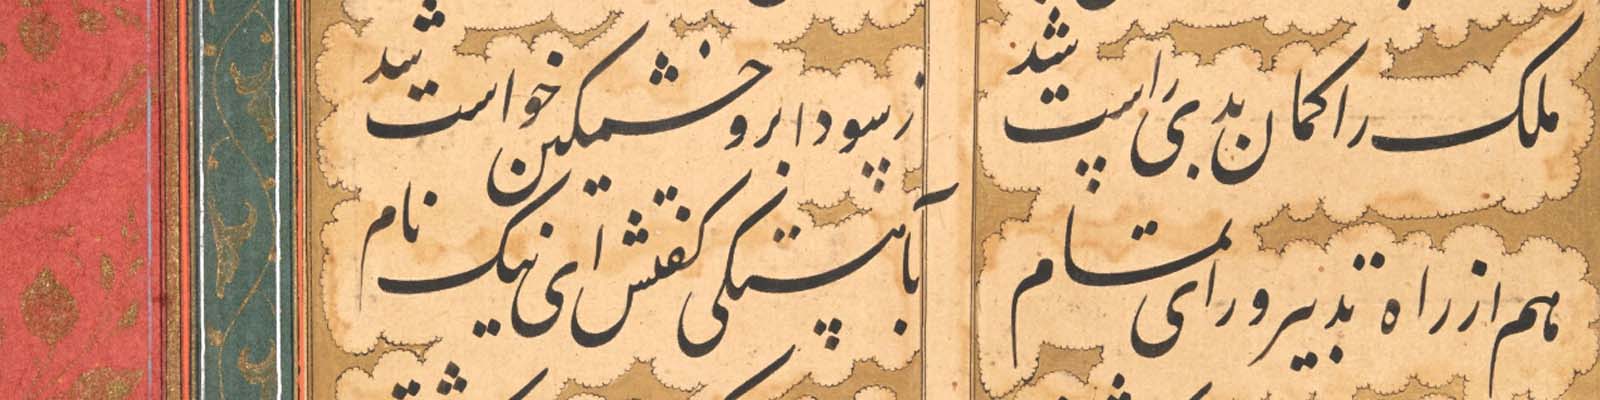 ملک را کمان بدی راست شد
ز سودا برو خشمکین خواست شد
هم از راه تدبیر و رای تمام
بآهستکی کفتش ای نیک نام